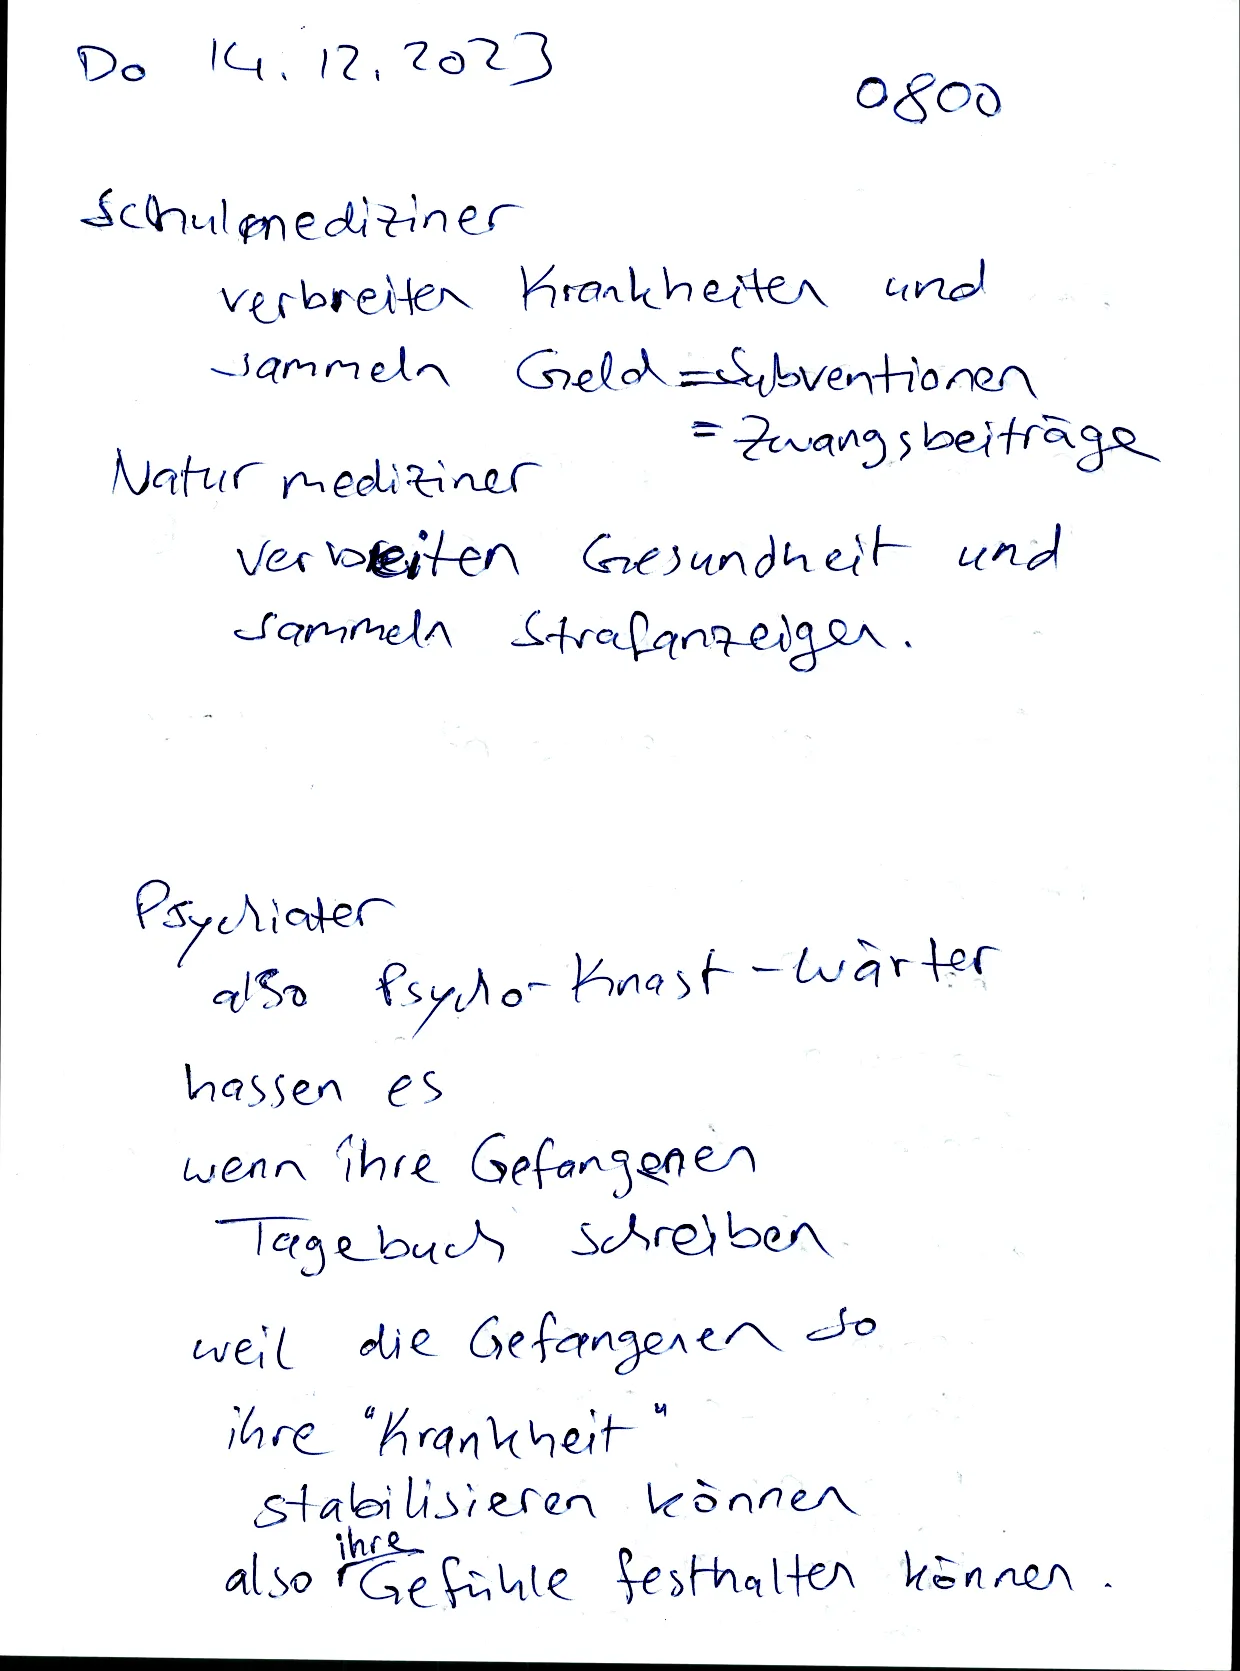 Do 14.12.2023
0800
Schulmediziner
verbreiten Krankheiten und
sammeln Geld = Subventionen
= Zwangsbeiträge
Naturmediziner
verbreiten Gesundheit und
sammeln Strafanzeigen.
Psychiater
also Psycho-Knast-Wärter
hassen es
wenn ihre Gefangenen
Tagebuch schreiben
weil die Gefangenen so
ihre "Krankheit"
stabilisieren können
also ihre Gefühle festhalten können.